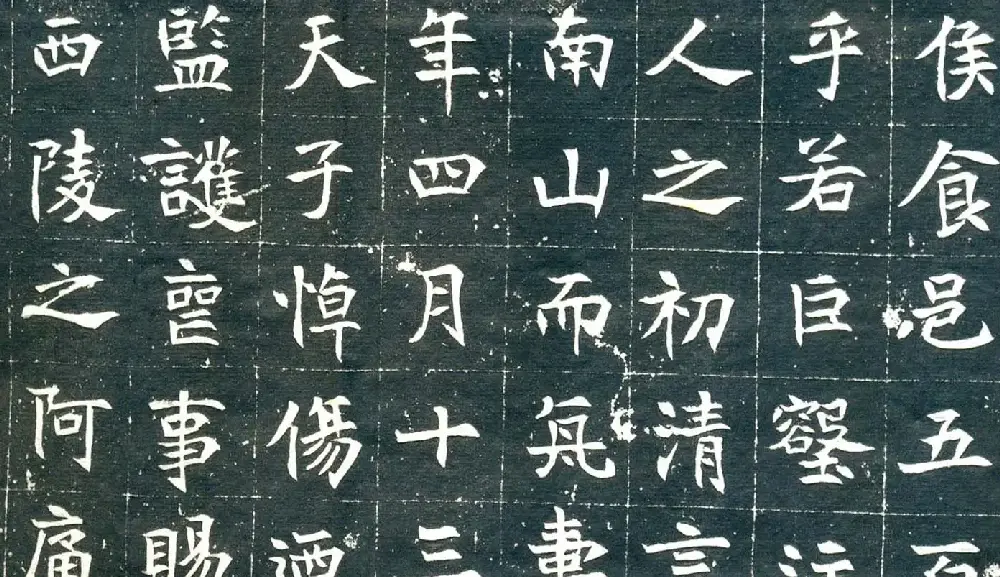 侯食邑五百
乎若巨壑行
人之初清言
南山而
年四月十三
天子悼傷
監護喪事賜
西陵之阿痛